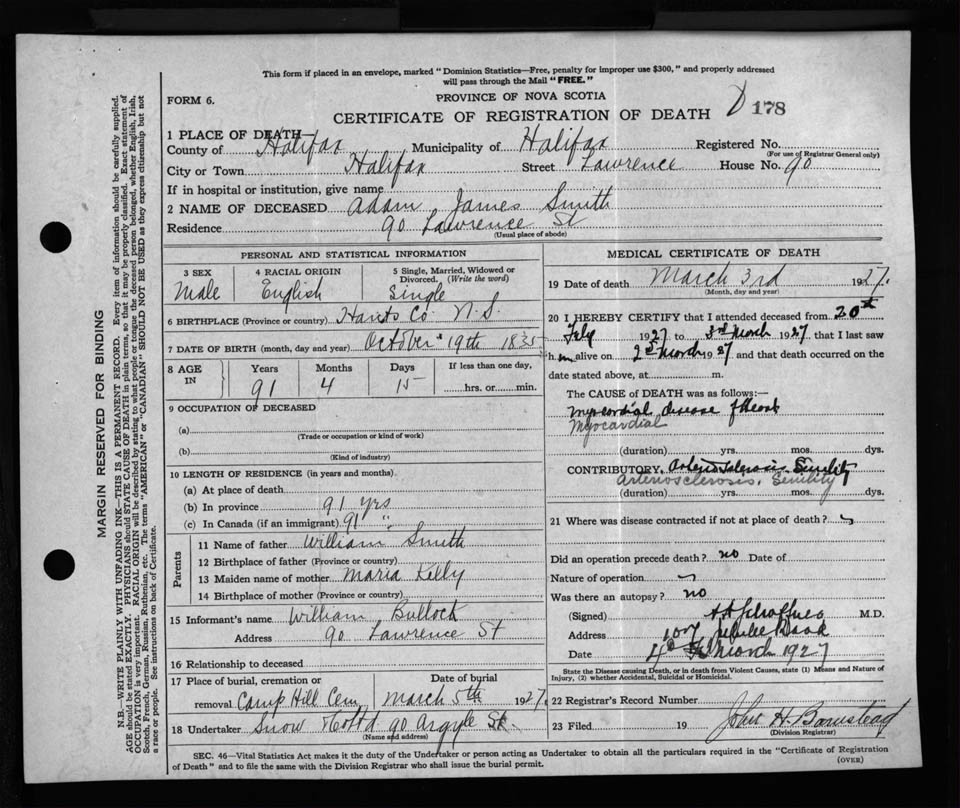 This form if placed in an envelope, marked "Dominion Statistics—Free, penalty for improper use $300," and properly addressed
will pass through the Mail "FREE."
FORM 6.
PROVINCE OF NOVA SCOTIA
CERTIFICATE OF REGISTRATION OF DEATH D 178
1 PLACE OF DEATH—
County of Halifax Municipality of Halifax Registered No.
(For use of Registrar General only)
City or Town Halifax Street Lawrence House No. 90
If in hospital or institution, give name
2 NAME OF DECEASED Adam James Smith
Residence 90 Lawrence St
(Usual place of abode)
PERSONAL AND STATISTICAL INFORMATION
3 SEX 4 RACIAL ORIGIN 5 Single, Married, Widowed or
Divorced. (Write the word)
Male English Single
6 BIRTHPLACE (Province or country) Hants Co N.S.
7 DATE OF BIRTH (month, day and year) October 19th 1835
8 AGE IN Years Months Days If less than one day,
91 4 15 hrs. or min.
9 OCCUPATION OF DECEASED
(a)
(Trade or occupation or kind of work)
(b)
(Kind of industry)
10 LENGTH OF RESIDENCE (in years and months)
(a) At place of death
(b) In province 91 yrs
(c) In Canada (if an immigrant) 91 "
Parents
11 Name of father William Smith
12 Birthplace of father (Province or country)
13 Maiden name of mother Maria Kelly
14 Birthplace of mother (Province or country)
15 Informant's name William Bullock
Address 90 Lawrence St
16 Relationship to deceased
17 Place of burial, cremation or Date of burial
removal Camp Hill Cem March 5th 1927
18 Undertaker Snow & Co Ltd 90 Argyle St.
(Name and address)
MEDICAL CERTIFICATE OF DEATH
19 Date of death March 3rd 1927.
(Month, day and year)
20 I HEREBY CERTIFY that I attended deceased from 20th
Feby 1927 to 3rd March 1927 that I last saw
h im alive on 2nd March 1927 and that death occurred on the
date stated above, at m.
The CAUSE OF DEATH was as follows:—
Myocardial disease of heart
Myocardial
(duration) yrs. mos. dys.
CONTRIBUTORY, Arteriosclerosis, Senility
Arteriosclerosis, Senility
(duration) yrs. mos. dys.
21 Where was disease contracted if not at place of death?
Did an operation precede death? no Date of
Nature of operation
Was there an autopsy? no
(Signed) M.D.
Address
Date 4th March 1927
State the Disease causing Death, or in death from Violent Causes, state (1) Means and Nature of
Injury, (2) whether Accidental, Suicidal or Homicidal.
22 Registrar's Record Number
23 Filed 19 John H. Barnstead
(Division Registrar)
SEC. 46—Vital Statistics Act makes it the duty of the Undertaker or person acting as Undertaker to obtain all the particulars required in the "Certificate of Registration
of Death" and to file the same with the Division Registrar who shall issue the burial permit.
(OVER)
MARGIN RESERVED FOR BINDING
N.B.—WRITE PLAINLY WITH UNFADING INK—THIS IS A PERMANENT RECORD. Every item of information should be carefully supplied.
AGE should be stated EXACTLY. PHYSICIANS should STATE CAUSE OF DEATH in plain terms, so that it may be properly classified. Exact statement of
OCCUPATION is very important. RACIAL ORIGIN will be described by stating to what people or tongue the deceased person belonged, whether English, Irish,
Scotch, French, German, Russian, Ruthenian, etc. The terms "AMERICAN" or "CANADIAN" SHOULD NOT BE USED as they express citizenship but not
a race or people. See instructions on back of Certificate.